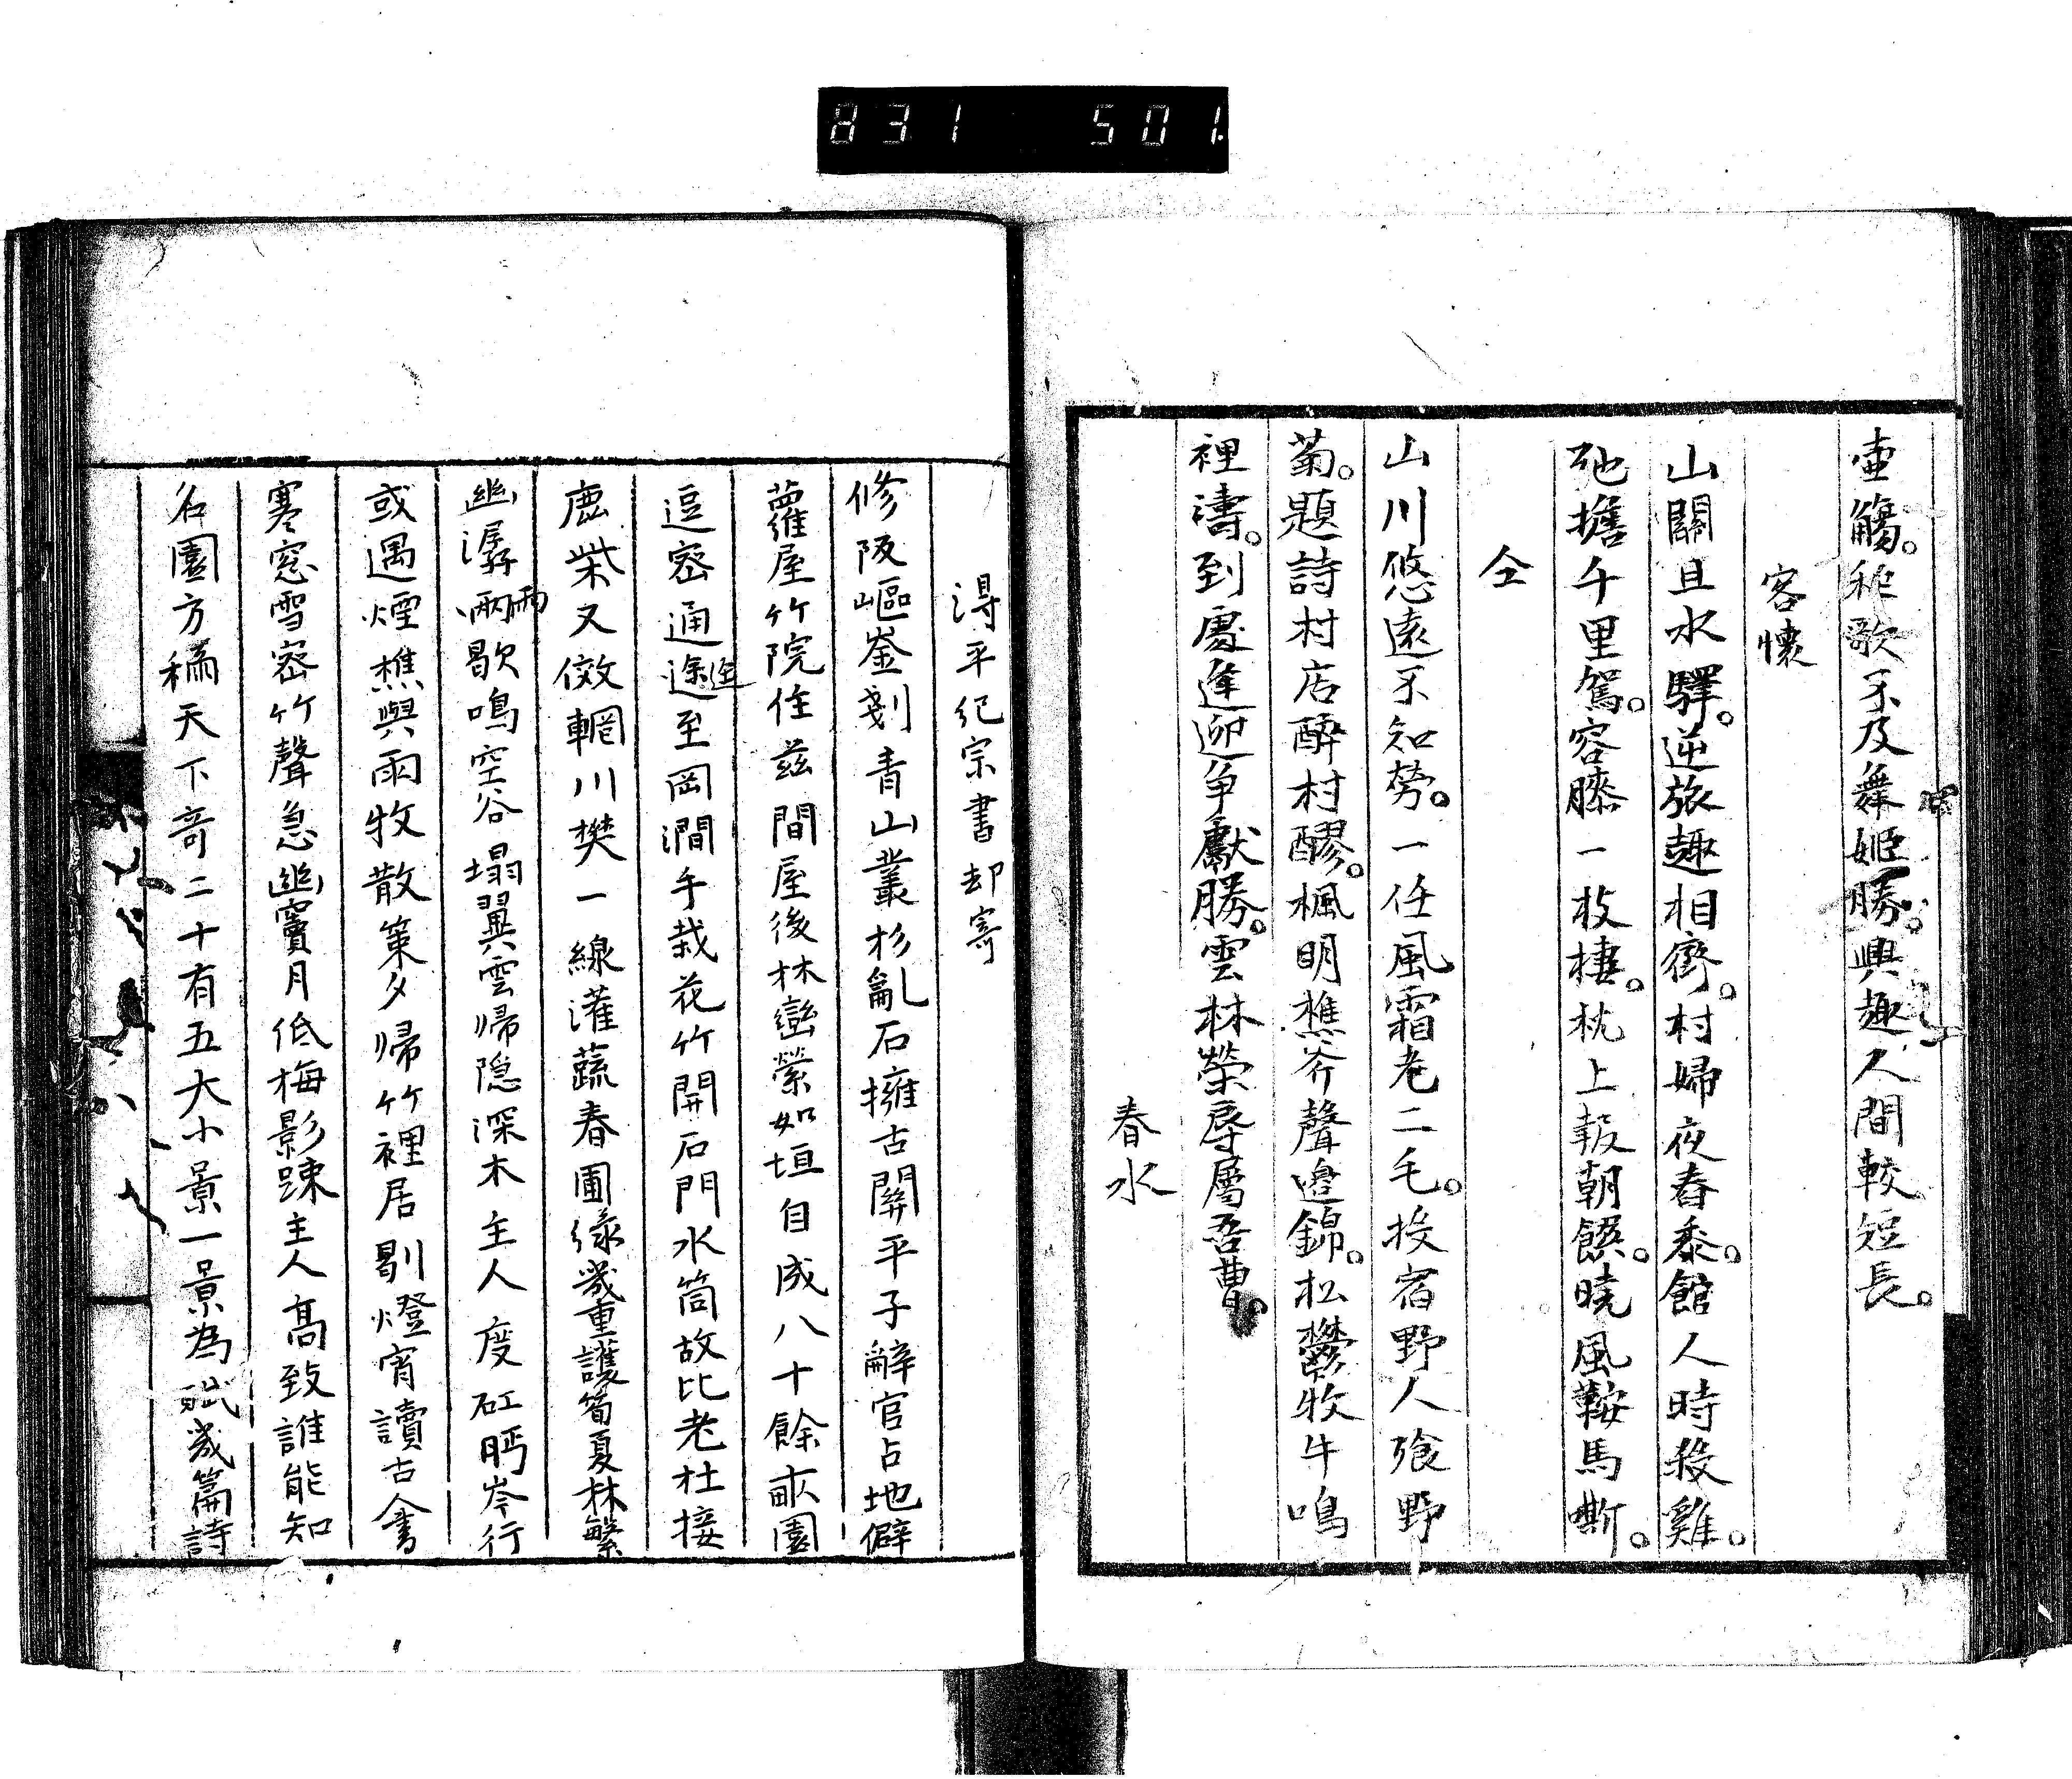 831 501
壷觴。秕歌不及舞姬勝。興趣人間較短長。
客懷
山關且水驛。逆旅趣相齊。村婦夜舂黍。館人時殺雞。
弛擔千里駕。容膝一枝棲。枕上報朝饌。曉風鞍馬嘶。
仝
山川悠遠不知勞。一任風霜老二毛。投宿野人飡野
菊。題詩村店醉村醪。楓明樵斧聲邊錦。松鬱牧牛鳴
裡濤。到處逢迎爭獻勝。雲林榮辱屬吾曹。
春水
得平紀宗書却寄
修阪嶇崟剗青山叢杉亂石擁古關平子辭官占地僻
蘿屋竹院住茲間屋後林巒縈如垣自成八十餘畝園
逗密通逶迤至岡澗手栽花竹開石門水筒故比老杜接
鹿柴又傚輞川樊一線灌蔬春圃綠幾重護筍夏林繁
幽潺雨歇鳴空谷塌翼雲歸隱深木主人度矼眄岑行
或遇煙樵與雨牧散策夕歸竹裡居剔燈宵讀古人書
寒窓雪密竹聲急幽竇月低梅影踈主人高致誰能知
名園方稱天下奇二十有五大小景一景為賦幾篇詩